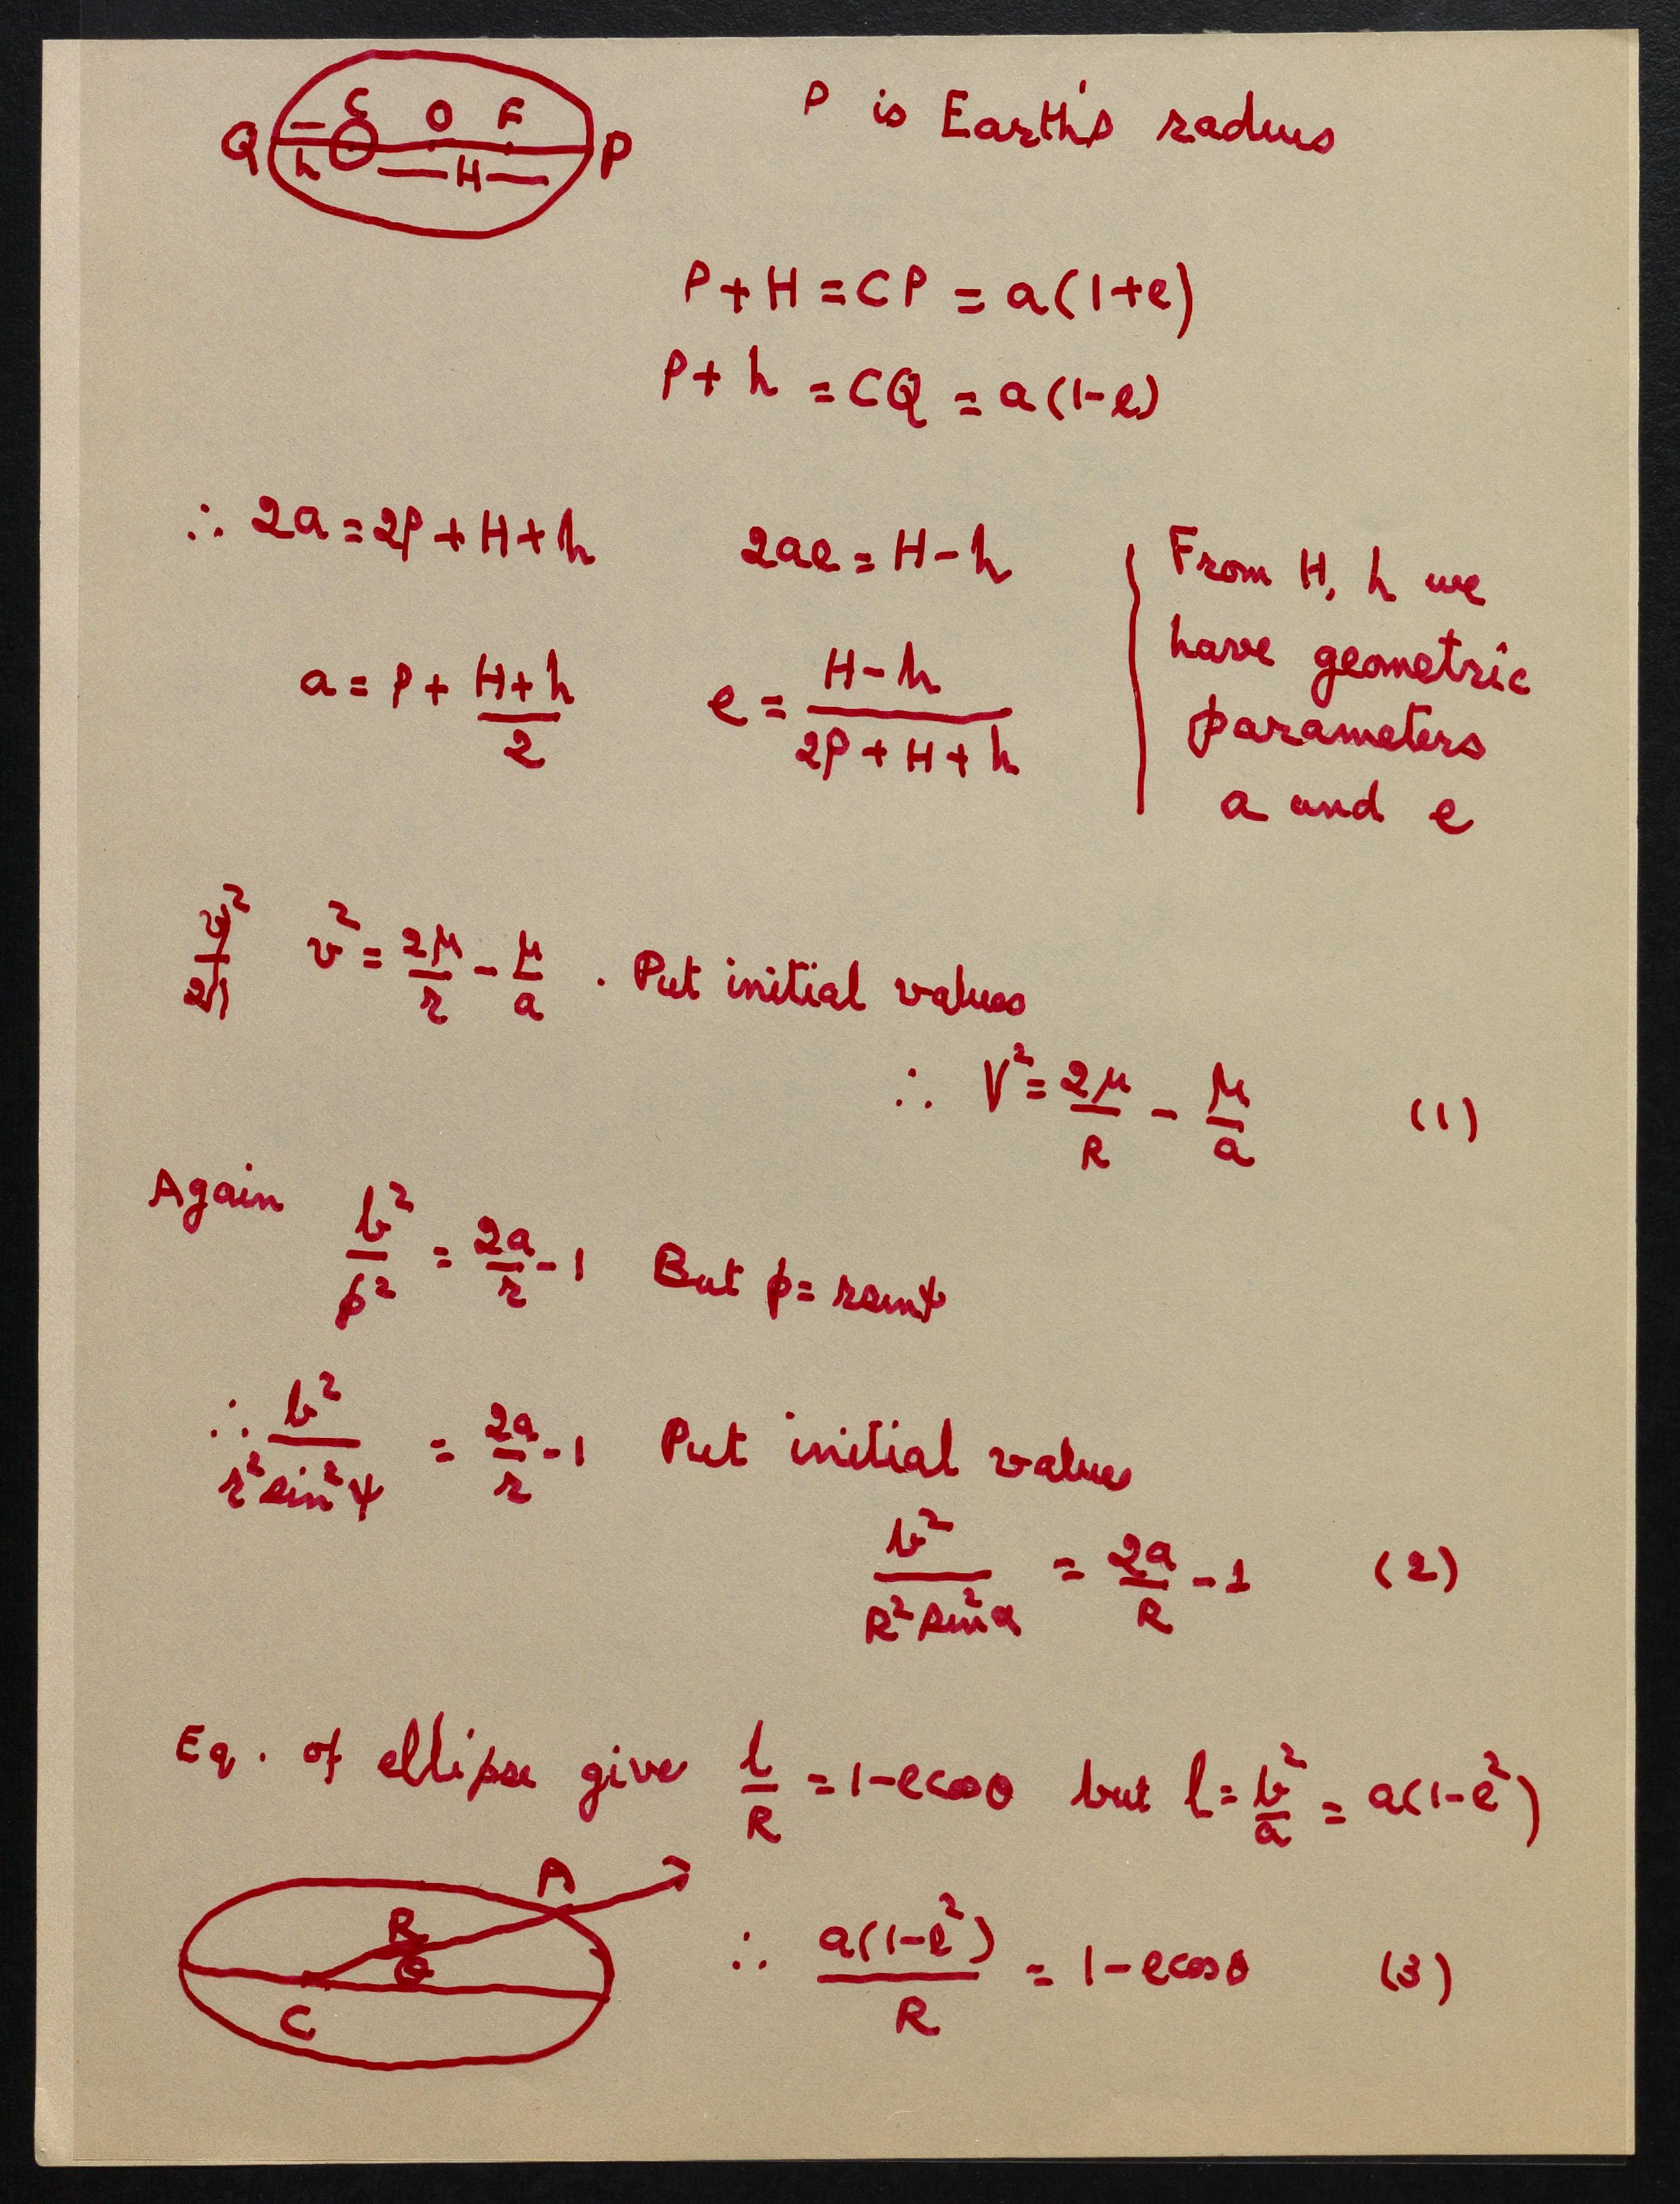 C O F
Q P
h H
ρ is Earth's radius
ρ + H = CP = a(1+e)
ρ + h = CQ = a(1-e)
∴ 2a = 2ρ + H + h 2ae = H - h
a = ρ + (H+h)/2 e = (H-h)/(2ρ+H+h)
From H, h we
have geometric
parameters
a and e
v² = 2μ/r - μ/a . Put initial values
∴ V² = 2μ/R - μ/a (1)
Again b²/p² = 2a/r - 1 But p = r sin ψ
∴ b²/(r² sin² ψ) = 2a/r - 1 Put initial values
b²/(R² sin² α) = 2a/R - 1 (2)
Eq. of ellipse give l/R = 1 - e cos θ but l = b²/a = a(1-e²)
A
R
θ
C
∴ a(1-e²)/R = 1 - e cos θ (3)